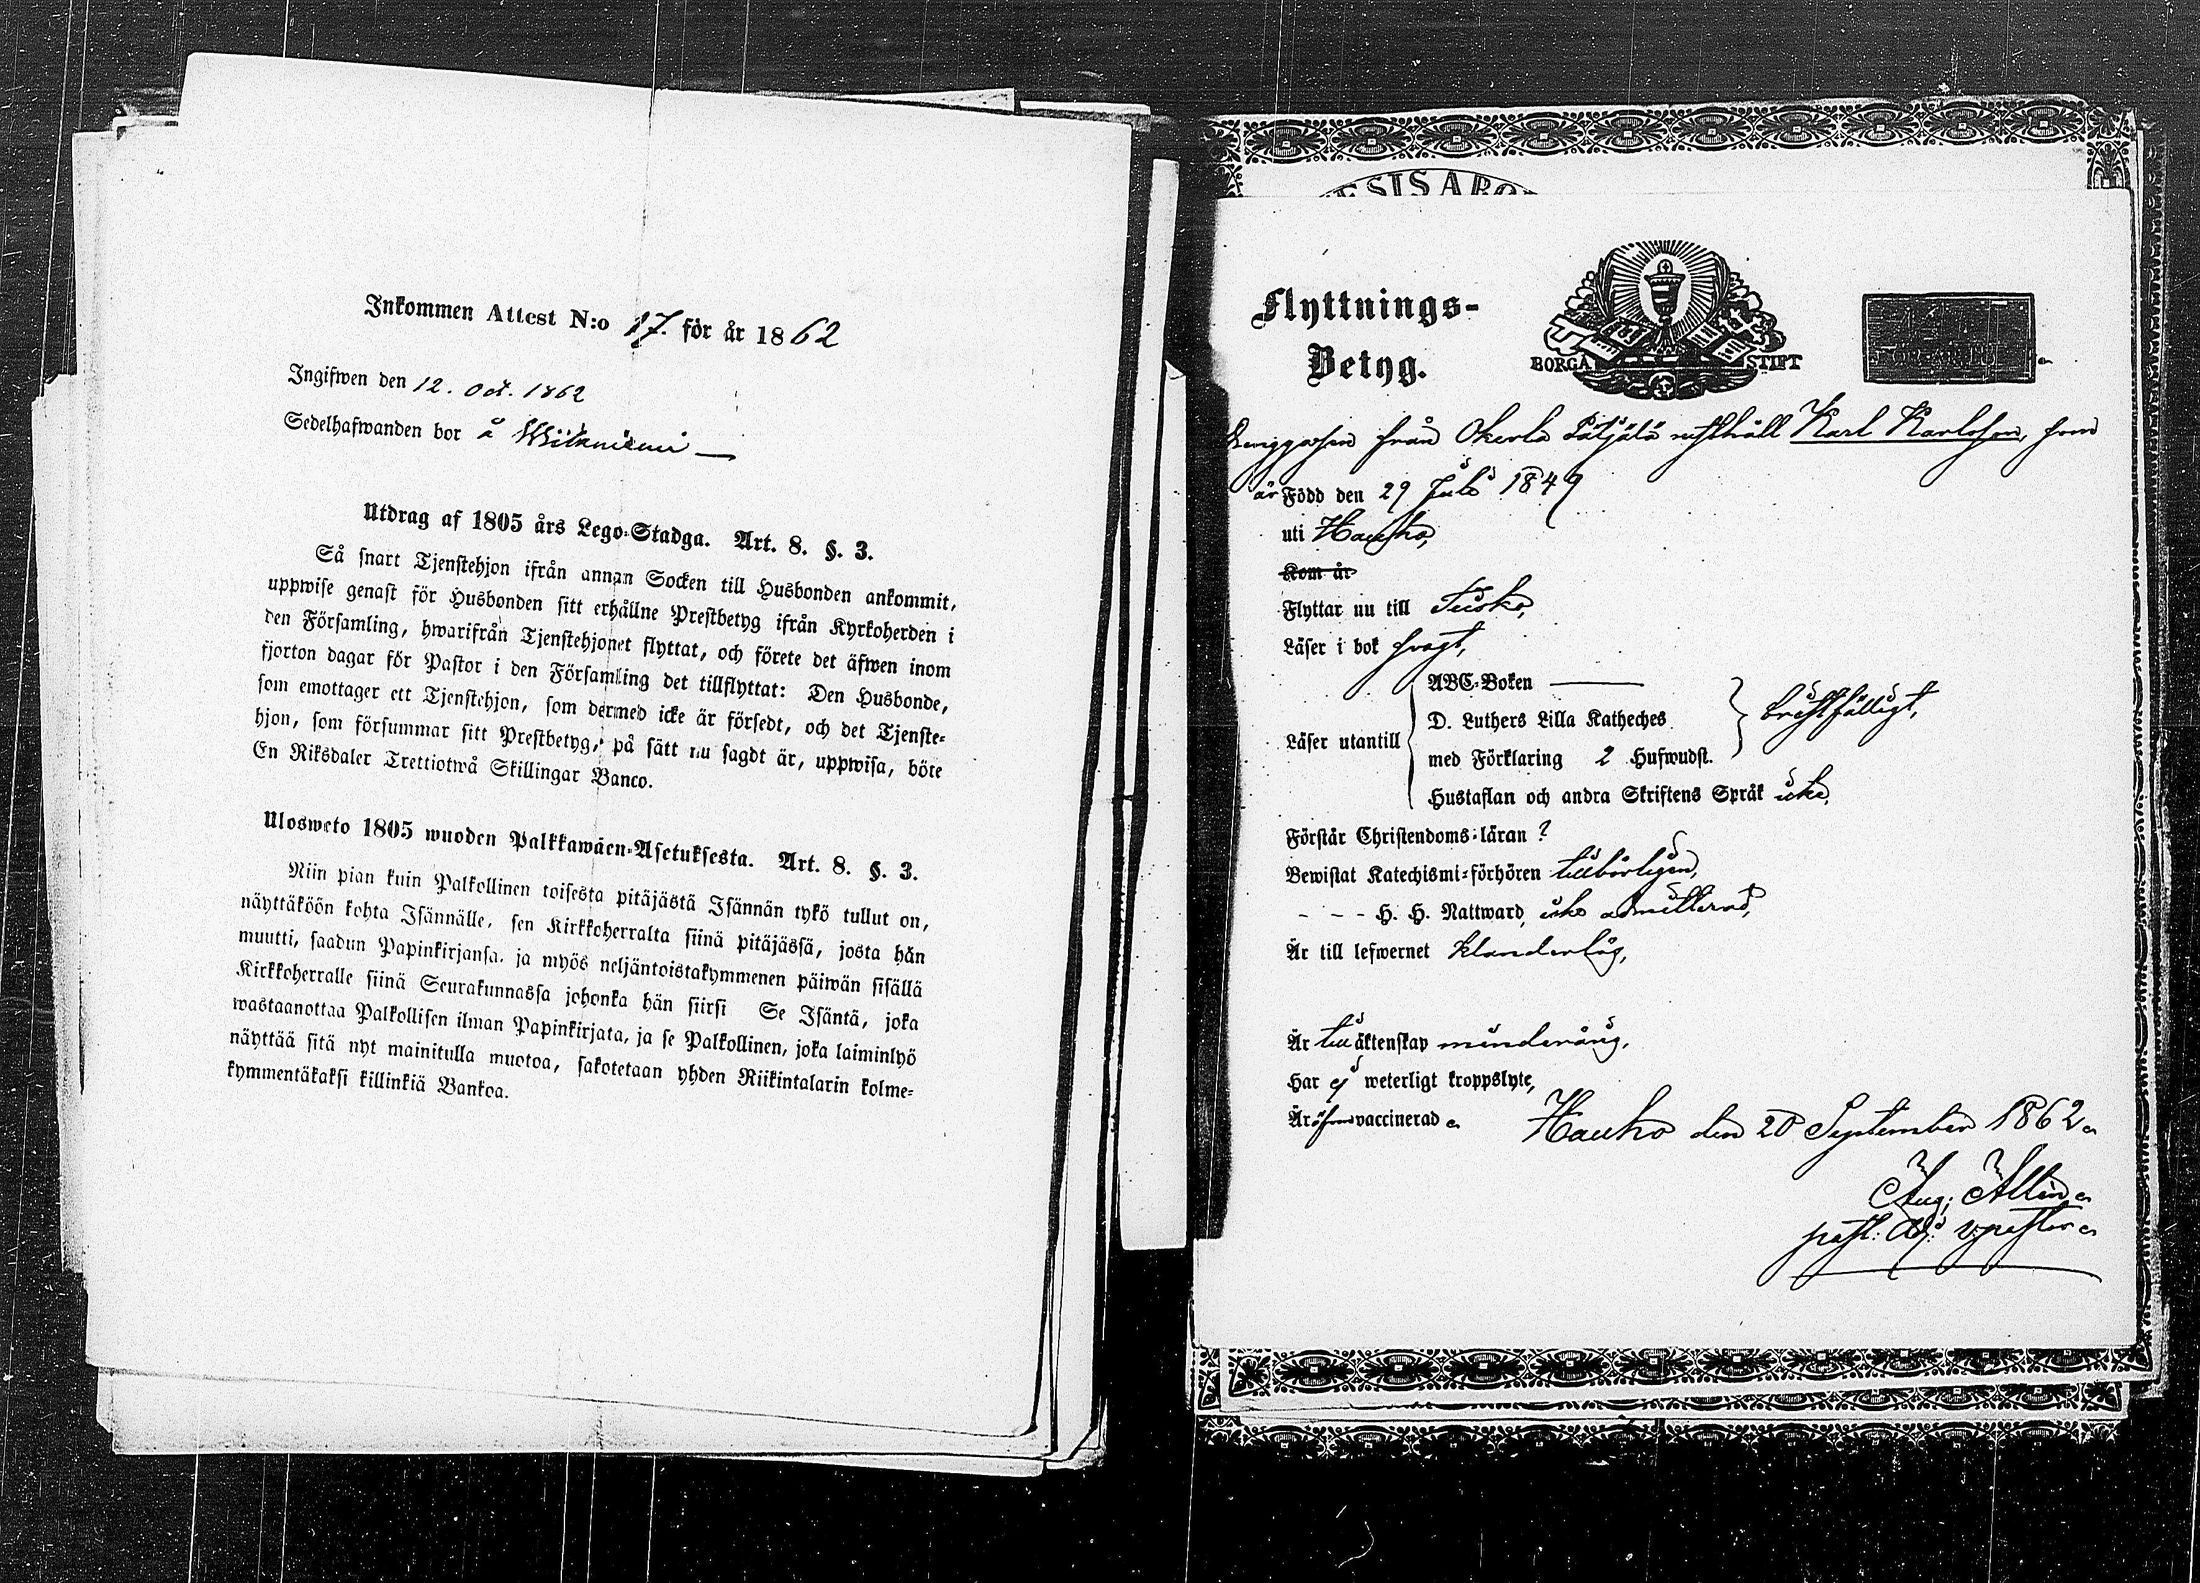 Inkommen Attest N:o 17. för år 1862
Ingifwen den 12. Oct. 1862
Sedelhafwanden bor å Wiikniemi
Utdrag af 1805 års Lego-Stadga. Art. 8. §. 3.
Så snart Tjenstehjon ifrån annan Socken till Husbonden ankommit,
uppwise genast för Husbonden sitt erhållne Prestbetyg ifrån Kyrkoherden i
den Församling, hwarifrån Tjenstehjonet flyttat, och förete det äfwen inom
fjorton dagar för Pastor i den Församling det tillflyttat: Den Husbonde,
som emottager ett Tjenstehjon, som dermed icke är försedt, och det Tjenste-
hjon, som försummar sitt Prestbetyg, på sätt nu sagdt är, uppwisa, böte
En Riksdaler Trettiotwå Skillingar Banco.
Ulosweto 1805 wuoden Palkkawäen-Asetuksesta. Art. 8. §. 3.
Niin pian kuin Palkollinen toisesta pitäjästä Isännän tykö tullut on,
näyttäköön kohta Isännälle, sen Kirkkoherralta siinä pitäjässä, josta hän
muutti, saadun Papinkirjansa, ja myös neljäntoistakymmenen päiwän sisällä
Kirkkoherralle siinä Seurakunnassa johonka hän siirsi Se Isäntä, joka
wastaanottaa Palkollisen ilman Papinkirjata, ja se Palkollinen, joka laiminlyö
näyttää sitä nyt mainitulla muotoa, sakotetaan yhden Riikintalarin kolme-
kymmentäkaksi killinkiä Bankoa.
Flyttnings-
Betyg.
BORGÅ STIFT
Drenggossen från Okerla Pätjälä rusthåll Karl Karlsson, som
är Född den 29 Juli 1849
uti Hauho,
Kom år
Flyttar nu till Tusko,
Läser i bok svagt,
Läser utantill
ABC-Boken
D. Luthers Lilla Katheches
med Förklaring 2 Hufwudst.
bristfälligt,
Hustaflan och andra Skriftens Språk icke,
Förstår Christendoms-läran ?
Bewistat Katechismi-förhören tillbörligen,
- - - H. H. Nattward, icke admitterad,
Är till lefwernet klanderlös,
Är till äktenskap minderårig,
Har ej weterligt kroppslyte,
Är äfven vaccinerad
Hauho den 20 September 1862
Aug. Allén
past. adj. v. pastor